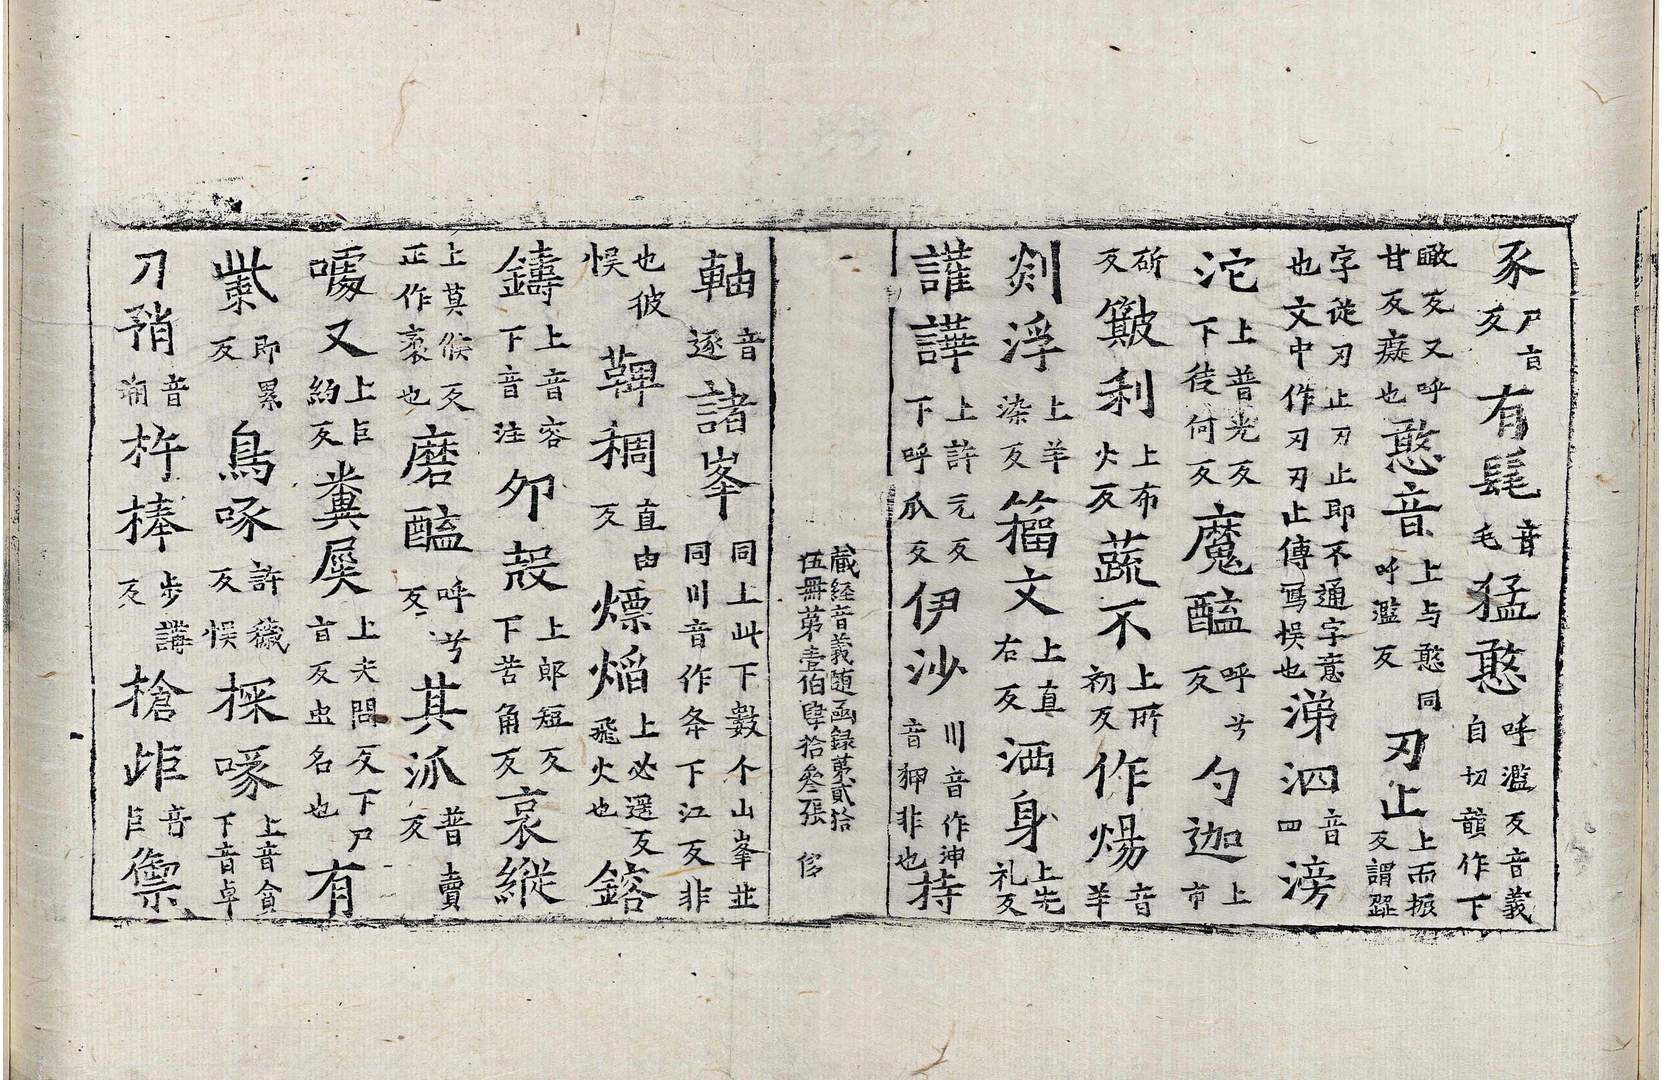 豕尸旨反有髦音毛猛憨呼濫反音義自切韻作下
瞰反又呼甘反癡也憨音上与憨同呼濫反刃止上而振反謂歰
字從刃止止刃止即不通字意也文中作刃刃止傳寫悮也涕泗音四滂
沱上普光反下徒何反魔醯呼兮反勺迦上市
斫反簸利上布火反蔬不上所初反作煬音羊
剡浮上羊染反籀文上直右反洒身上先礼反
讙譁上許元反下呼瓜反伊沙川音作沖音狎非也持
藏経音義随函録苐貳拾伍冊苐壹伯肆拾叄張
軸音逐諸峯同上此下數个山峯並同川音作夅下江反非
也彼悮鞞稠直由反熛焰上必遥反飛火也鎔
鑄上音容下音注夘㲉上郎短反下苦角反裒縱
上莫候反正作袤也磨醯呼兮反其泒普賣反
噱又上巨約反糞屎上夫問反下尸旨反虫名也有
㭰即累反鳥啄許穢反悮採啄上音貪下音卓
刀矟音朔杵棒步講反槍岠音巨禦